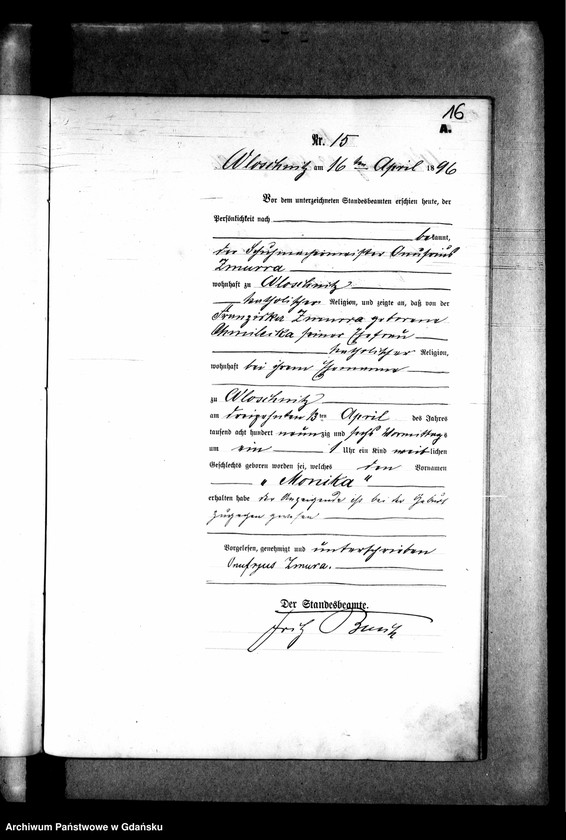 16
A.
Nr. 15
Wloschnitz am 16 ten April 1896
Vor dem unterzeichneten Standesbeamten erschien heute, der
Persönlichkeit nach
bekannt,
der Schuhmachermeister
Zmurra
wohnhaft zu Wloschnitz
katholischer Religion, und zeigte an, daß von der
Franziska Zmurra geborene
seiner Ehefrau
katholischer Religion,
wohnhaft bei ihrem Ehemanne
zu Wloschnitz
am dreizehnten 13ten April des Jahres
tausend acht hundert neunzig und sechs Vormittags
um ein 1 Uhr ein Kind weiblichen
Geschlechts geboren worden sei, welches den Vornamen
„Monika"
erhalten habe der Anzeigende ist bei der Geburt
zugegen gewesen
Vorgelesen, genehmigt und unterschrieben
Zmura.
Der Standesbeamte.
Fritz
Archiwum Państwowe w Gdańsku